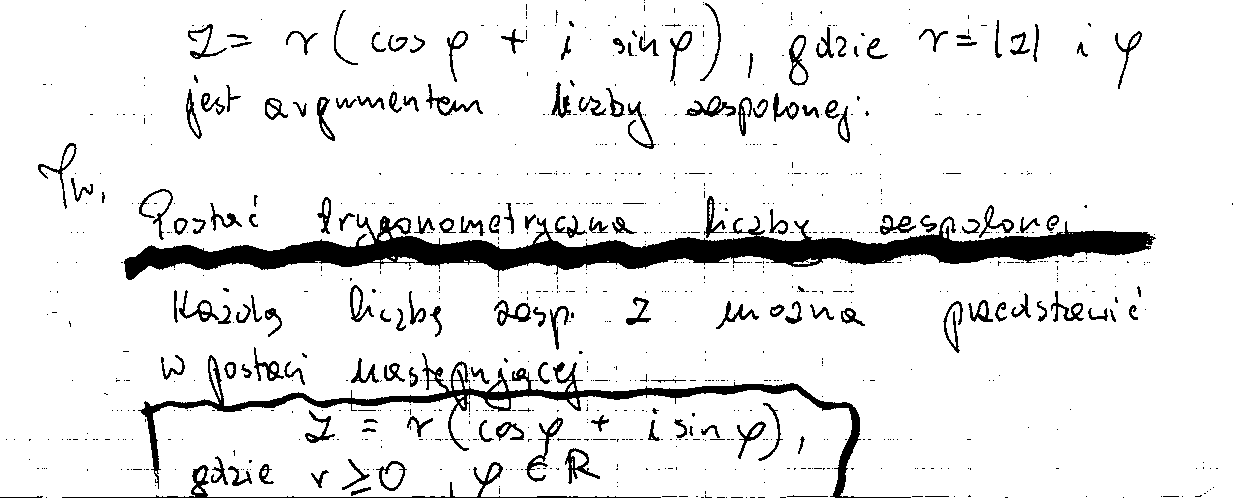 z = r(cos φ + i sin φ), gdzie r = |z| i φ
jest argumentem liczby zespolonej.
Tw.
Postać trygonometryczna liczby zespolonej
Każdą liczbę zesp. z można przedstawić
w postaci następującej
z = r(cos φ + i sin φ),
gdzie r ≥ 0, φ ∈ ℝ